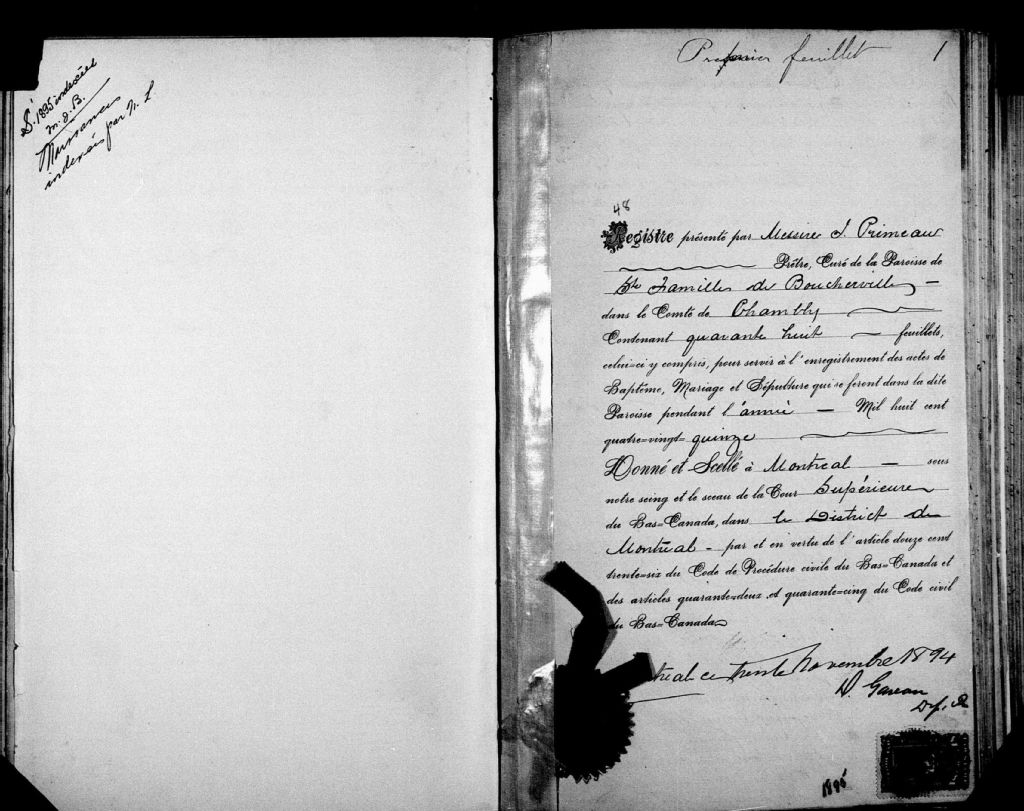 S. 1895 indexées
m. J. B.
Naissances
indexées par N. L
Premier feuillet 1
48
Registre présenté par Messire J. Primeau
Prêtre, Curé de la Paroisse de
Ste Famille de Boucherville
dans le Comté de Chambly
Contenant quarante huit feuillets,
celui-ci y compris, pour servir à l'enregistrement des actes de
Baptême, Mariage et Sépulture qui se feront dans la dite
Paroisse pendant l'année Mil huit cent
quatre-vingt-quinze
Donné et Scellé à Montreal sous
notre seing et le sceau de la Cour Supérieure
du Bas-Canada, dans le District de
Montréal - par et en vertu de l'article douze cent
trente-six du Code de Procédure civile du Bas-Canada et
des articles quarante-deux et quarante-cinq du Code civil
du Bas-Canada
tréal ce trente Novembre 1894
1895